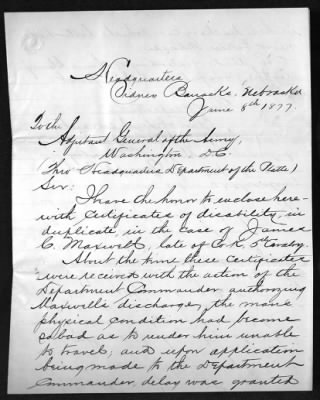 Headquarters
Sidney Barracks, Nebraska
June 8th 1877.
To the
Adjutant General of the Army,
Washington D.C.
Thro' Headquarters Department of the Platte)
Sir:
I have the honor to enclose here-
with Certificates of disability, in
duplicate, in the case of James
C. Maxwell, late of Co. K, 5th Cavalry.
About the time these Certificates
were received with the action of the
Department Commander authorizing
Maxwell's discharge, the man's
physical condition had become
so bad as to render him unable
to travel, and upon application
being made to the Department
Commander, delay was granted